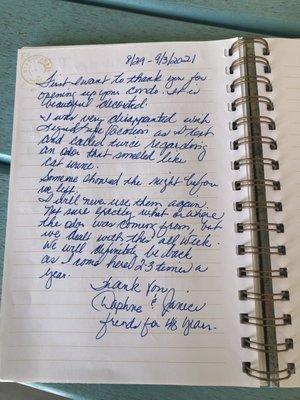 8/29 - 9/3/2021
First I want to thank you for
opening up your condo. It is
beautiful decorated.
I was very disappointed with
Vacation as I text
and called twice regarding
an odor that smelled like
cat urine.
Someone showed the night before
we left.
I will never use them again.
Not sure exactly what or where
the odor was coming from, but
we dealt with this all week.
We will definitely be back
as I come here 2-3 times a
year.
Thank You,
Daphne & Janice
friends for 48 years.